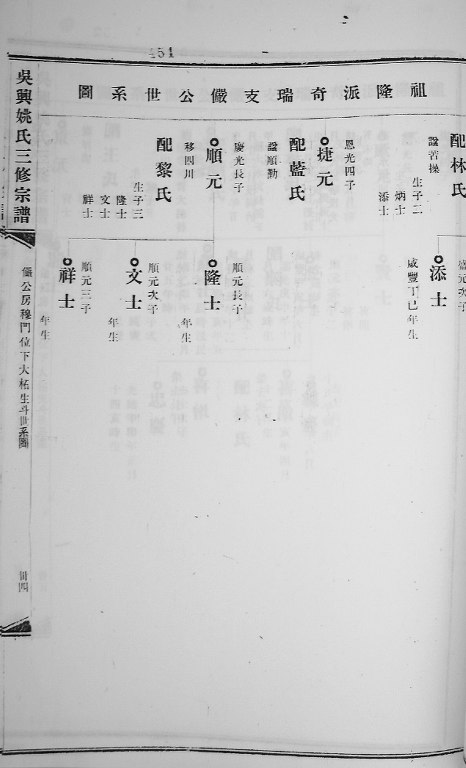 454
祖隆派奇瑞支儼公世系圖
配林氏
諡若操
生子二
炳士
添士
捷元
恩光四子
配藍氏
諡順勤
順元
慶光長子
移四川
配黎氏
生子三
隆士
文士
祥士
盛元次子
添士
咸豐丁巳年生
順元長子
隆士
年生
順元次子
文士
年生
順元三子
祥士
年生
吳興姚氏三修宗譜
儼公房樓門位下大柘生斗世系圖
卌四